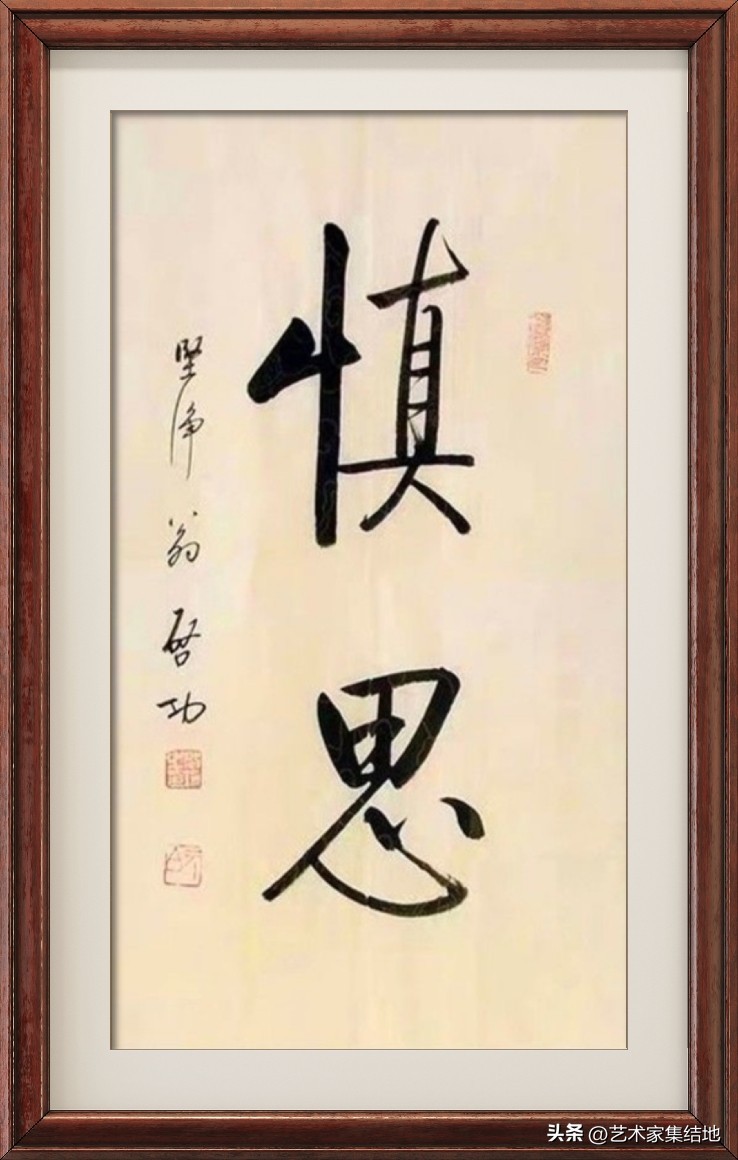 慎思
坚净翁启功
头条 @艺术家集结地